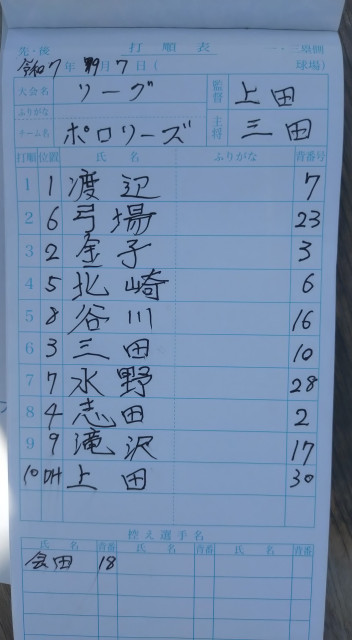 先・後 打順表 一・三塁側
令和7年 9月7日( 球場)
大会名 リーグ 監督 上田
ふりがな
チーム名 ポロリーズ 主将 三田
打順 位置 氏名 ふりがな 背番号
1 1 渡辺 7
2 6 弓場 23
3 2 金子 3
4 5 北崎 6
5 8 谷川 16
6 3 三田 10
7 7 水野 28
8 4 志田 2
9 9 滝沢 17
10 DH 上田 30
控え選手名
氏名 背番 氏名 背番 氏名 背番
会田 18